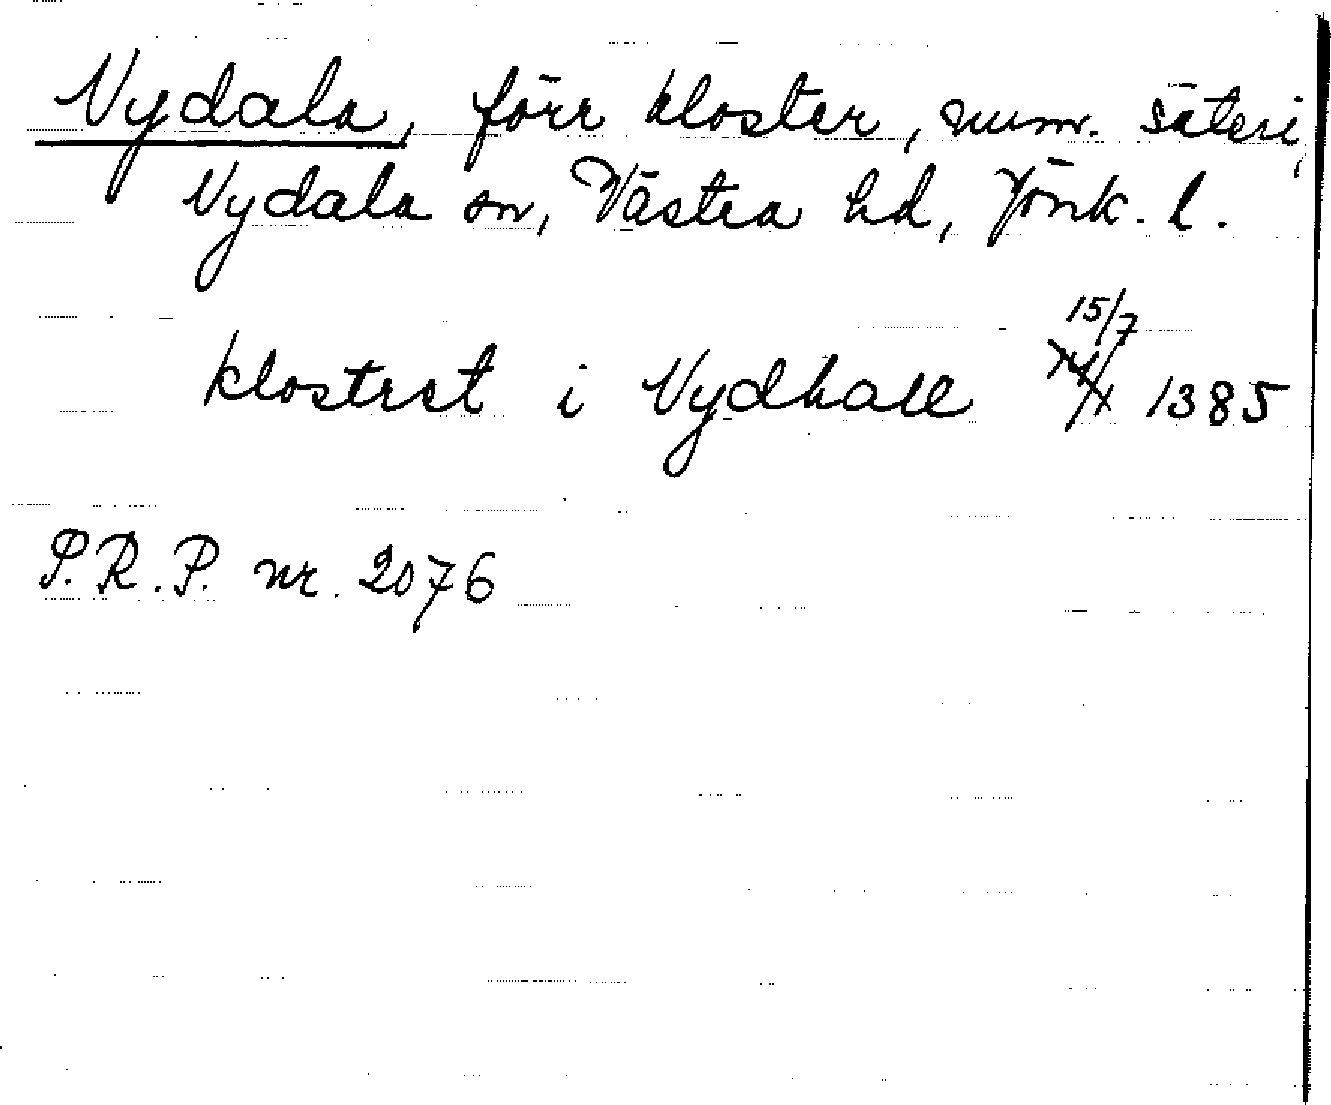 Nydala, förr kloster, num. säteri,
Nydala sn, Västra hd, Jönk. l.
15/7
klostret i Nydhale 1385
S.R.P. nr. 2076